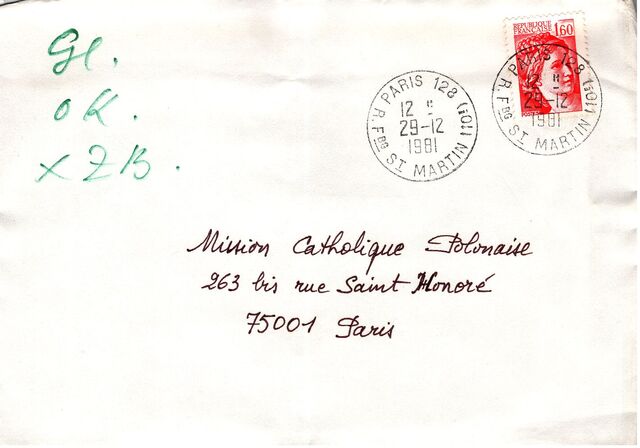 Gl.
OK.
x ZB.
RÉPUBLIQUE
FRANÇAISE 1,60
POSTES
PARIS 128 (10E)
12 H
29-12
1981
R. FBG ST MARTIN
PARIS 128 (10E)
12 H
29-12
1981
R. FBG ST MARTIN
Mission Catholique Polonaise
263 bis rue Saint Honoré
75001 Paris